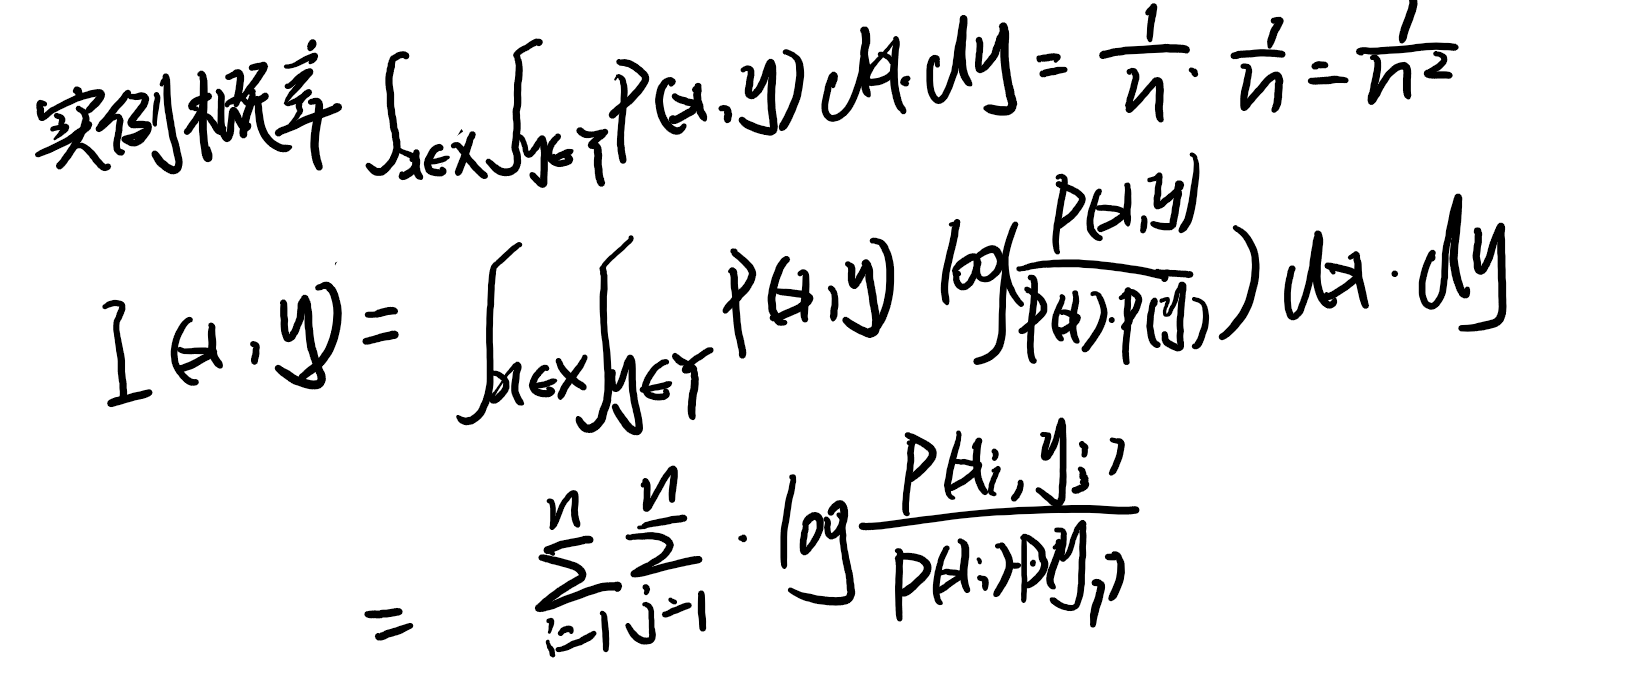 实例概率 ∫_{x∈X}∫_{y∈Y} P(x,y) dx·dy = 1/n · 1/n = 1/n²
I(x,y) = ∫_{x∈X}∫_{y∈Y} P(x,y) log(P(x,y)/(P(x)·P(y))) dx·dy
= Σ_{i=1}^{n} Σ_{j=1}^{n} · log P(x_i,y_j)/(P(x_i)·P(y_j))